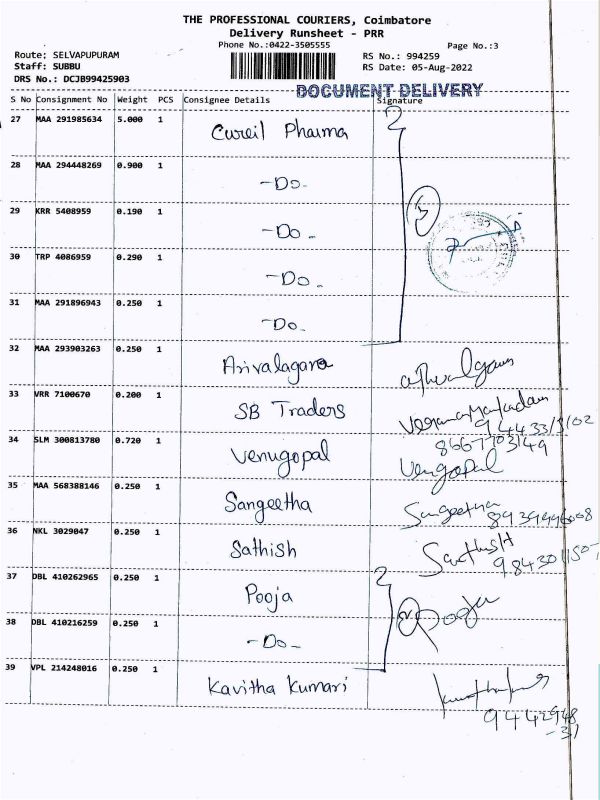 THE PROFESSIONAL COURIERS, Coimbatore
Delivery Runsheet - PRR
Phone No.:0422-3505555
Page No.:3
Route: SELVAPUPURAM
RS No.: 994259
Staff: SUBBU
RS Date: 05-Aug-2022
DRS No.: DCJB99425903
DOCUMENT DELIVERY
S No Consignment No Weight PCS Consignee Details Signature
27 MAA 291985634 5.000 1 Cureil Pharma
28 MAA 294448269 0.900 1 -Do-
5
29 KRR 5408959 0.190 1 -Do-
30 TRP 4086959 0.290 1 -Do-
31 MAA 291896943 0.250 1 -Do-
32 MAA 293903263 0.250 1 Arivalagara
33 VRR 7100670 0.200 1 SB Traders
34 SLM 300813780 0.720 1 Venugopal Vengopal
8667703149
35 MAA 568388146 0.250 1 Sangeetha Sangeetha
36 NKL 3029047 0.250 1 Sathish
37 DBL 410262965 0.250 1 Pooja Pooja
38 DBL 410216259 0.250 1 -Do-
39 VPL 214248016 0.250 1 Kavitha Kumari
9442948
-31